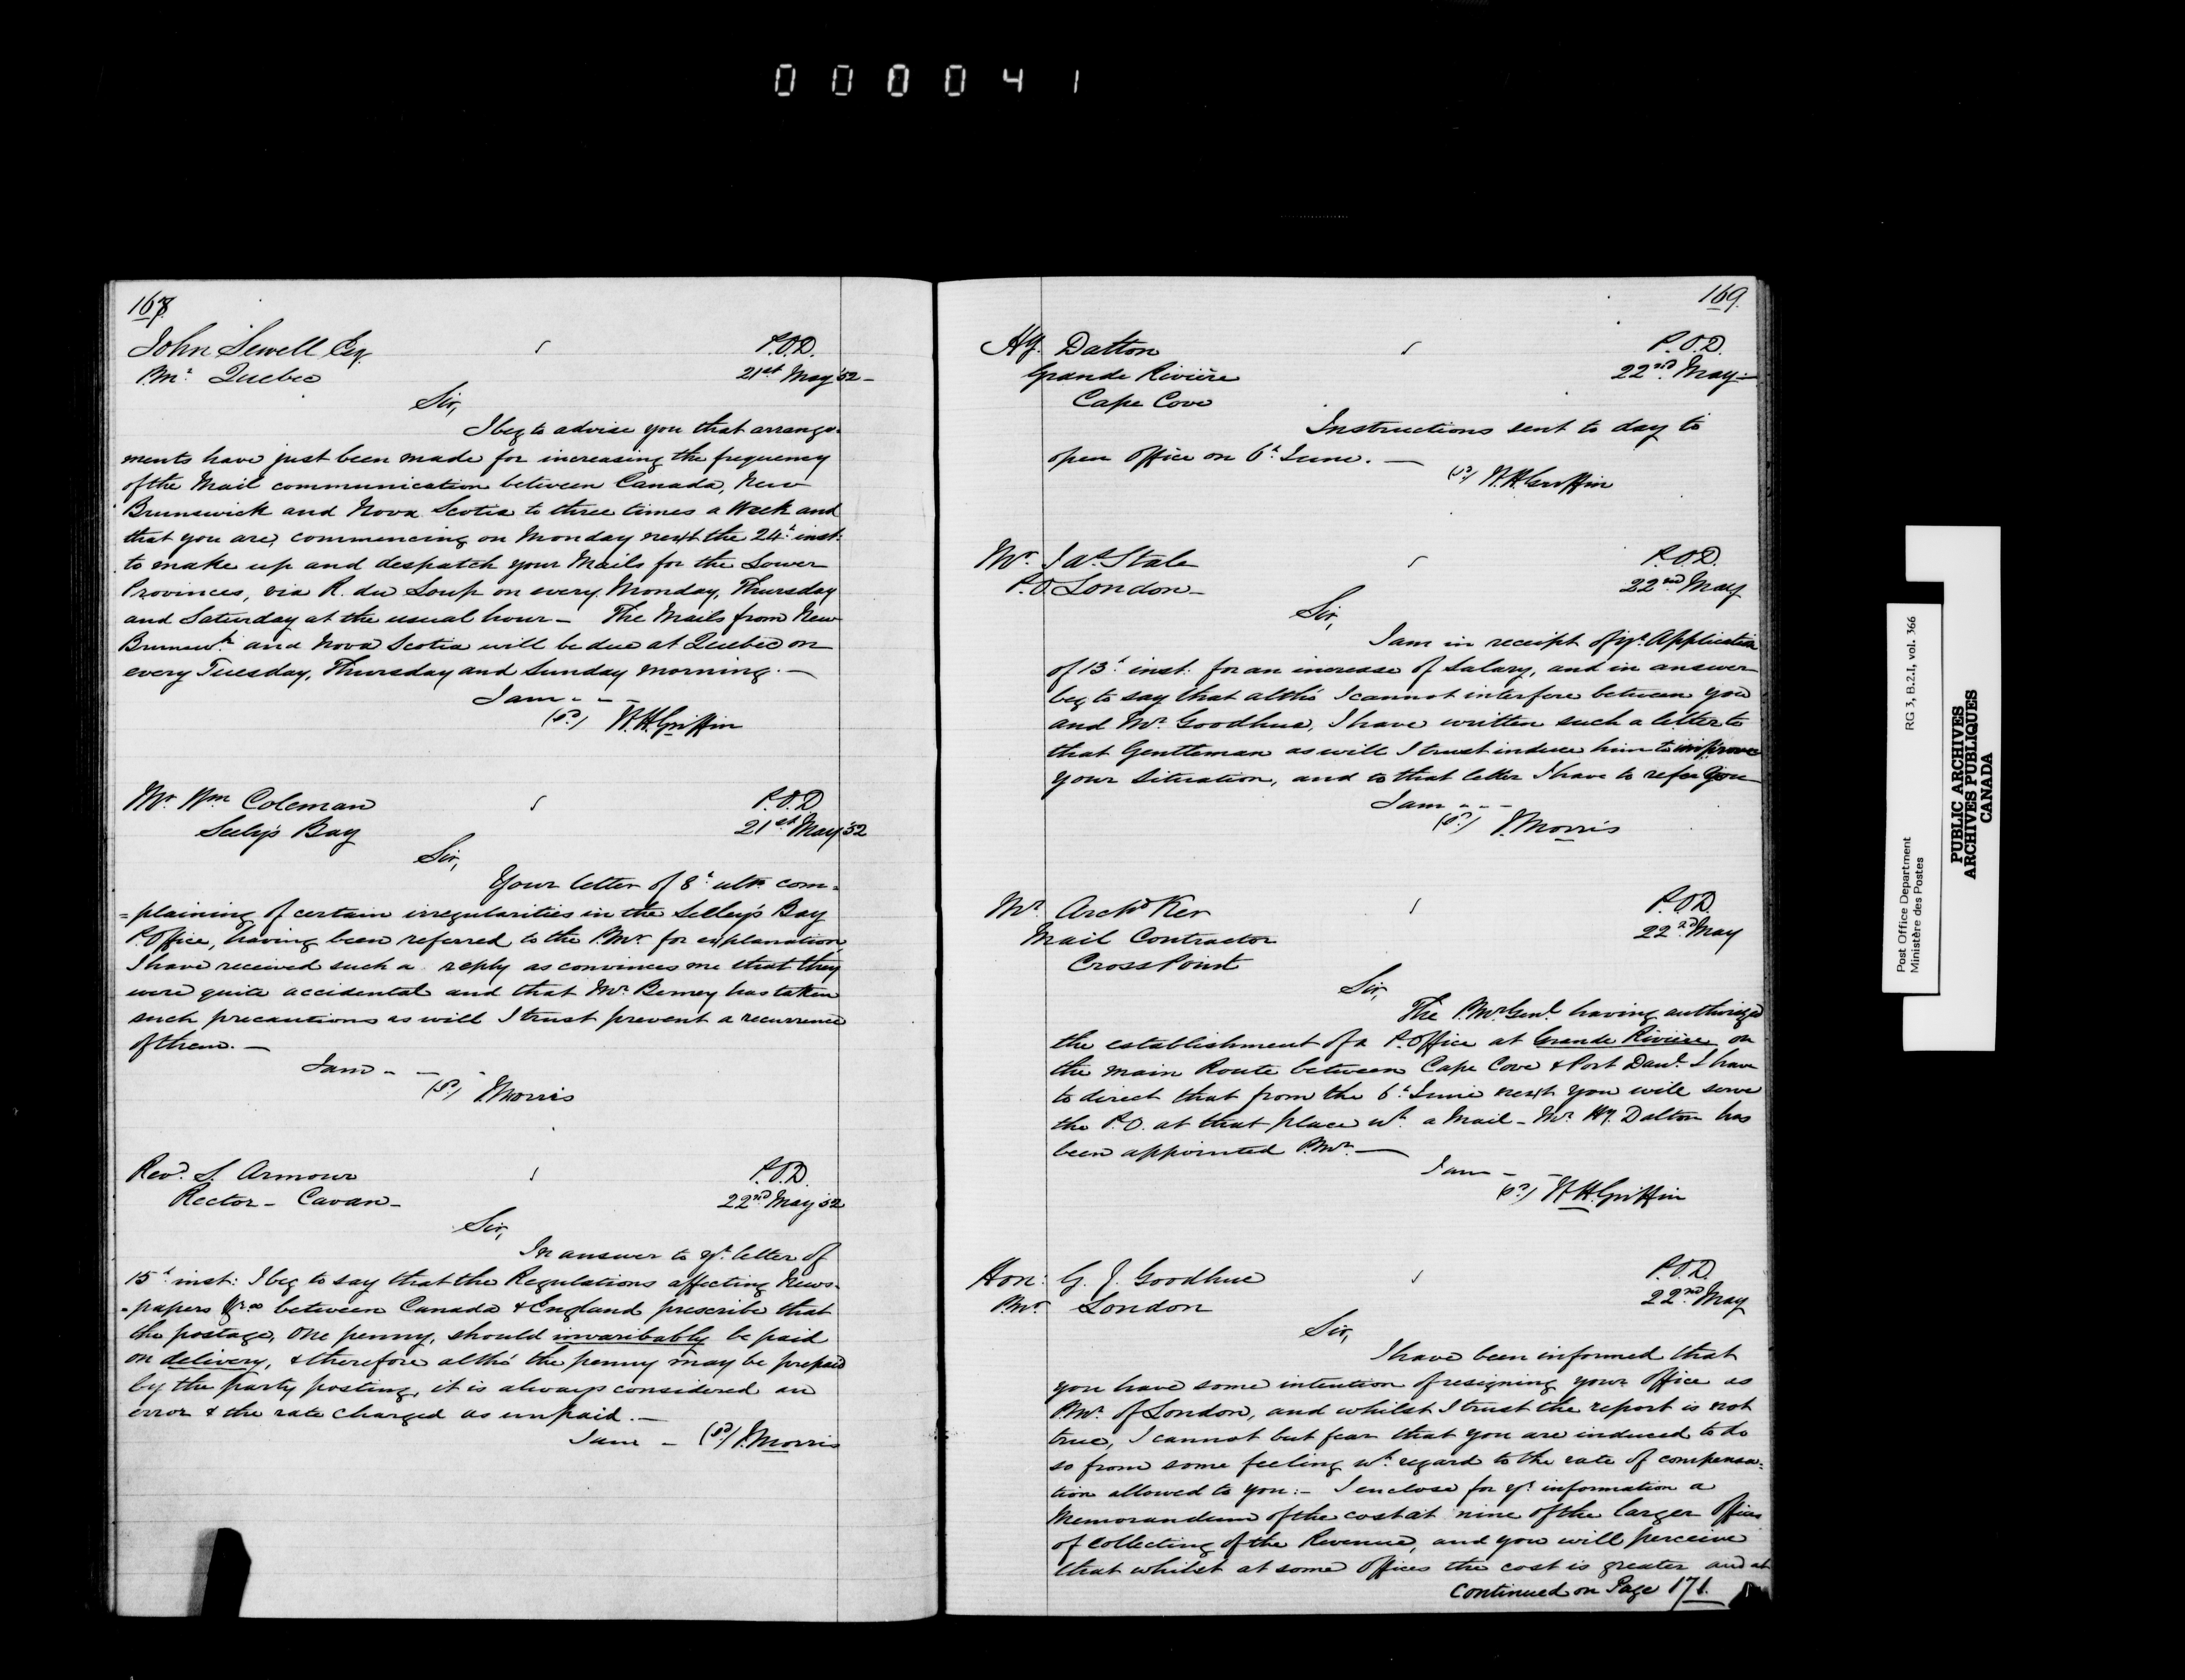 000041
168
John Sewell Esq. P.O.D.
P.Mr. Quebec 21st May '52 -
Sir,
I beg to advise you that arrange-
ments have just been made for increasing the frequency
of the Mail communication between Canada, New
Brunswick and Nova Scotia to three times a Week and
that you are, commencing on Monday next the 24th inst.
to make up and despatch your Mails for the Lower
Provinces, via R. du Loup on every Monday, Thursday
and Saturday at the usual hour - The Mails from New
Brunswk. and Nova Scotia will be due at Quebec on
every Tuesday, Thursday and Sunday morning. -
I am - - -
(sd) W.H. Griffin
Mr. Wm Coleman P.O.D.
Seely's Bay 21st May '52
Sir,
Your letter of 8th ulto. com=
=plaining of certain irregularities in the Selley's Bay
P. Office, having been referred to the P.Mr. for explanation,
I have received such a reply as convinces me that they
were quite accidental and that Mr. Berney has taken
such precautions as will I trust prevent a recurrence
of them. -
I am - - -
(sd) J. Morris
Revd. S. Armour P.O.D.
Rector - Cavan - 22nd May '52
Sir,
In answer to yr. letter of
15th inst: I beg to say that the Regulations affecting News-
-papers between Canada & England prescribe that
the postage, one penny, should invaribably be paid
on delivery, & therefore altho' the penny may be prepaid
by the party posting, it is always considered an
error & the rate charged as unpaid. -
I am - (sd) J. Morris
169.
Hy. Dalton P.O.D.
Grande Rivière 22nd May -
Cape Cove
Instructions sent to day to
open office on 6th June. -
(sd) W.H. Griffin
Mr. Jas. Stale P.O.D.
P.O London - 22nd May
Sir,
I am in receipt of yr. Application
of 13th inst. for an increase of Salary, and in answer
beg to say that altho' I cannot interfere between you
and Mr. Goodhue, I have written such a letter to
that Gentleman as will I trust induce him to improve
your situation, and to that letter I have to refer you
I am - - -
(sd) J. Morris
Mr. Archd Ker P.O.D.
Mail Contractor 22nd May
Cross Point
Sir,
The P.Mr. Genl. having authorized
the establishment of a P. Office at Grande Rivière on
the main Route between Cape Cove & Port Danl. I have
to direct that from the 6th June next you will serve
the P.O. at that place wh. a Mail - Mr. Hy. Dalton has
been appointed P.Mr. -
I am - -
(sd) W.H. Griffin
Hon: G. J. Goodhue P.O.D.
P.Mr. London 22nd May
Sir,
I have been informed that
you have some intention of resigning your office as
P.Mr. of London, and whilst I trust the report is not
true, I cannot but fear that you are induced to do
so from some feeling wh. regard to the rate of compensa=
tion allowed to you:- I enclose for yr. information a
Memorandum of the cost at nine of the larger Offices
of collecting of the Revenue, and you will perceive
that whilst at some offices the cost is greater and at
Continued on Page 171.
Post Office Department RG 3, B.2.I, vol. 366
Ministère des Postes
PUBLIC ARCHIVES
ARCHIVES PUBLIQUES
CANADA